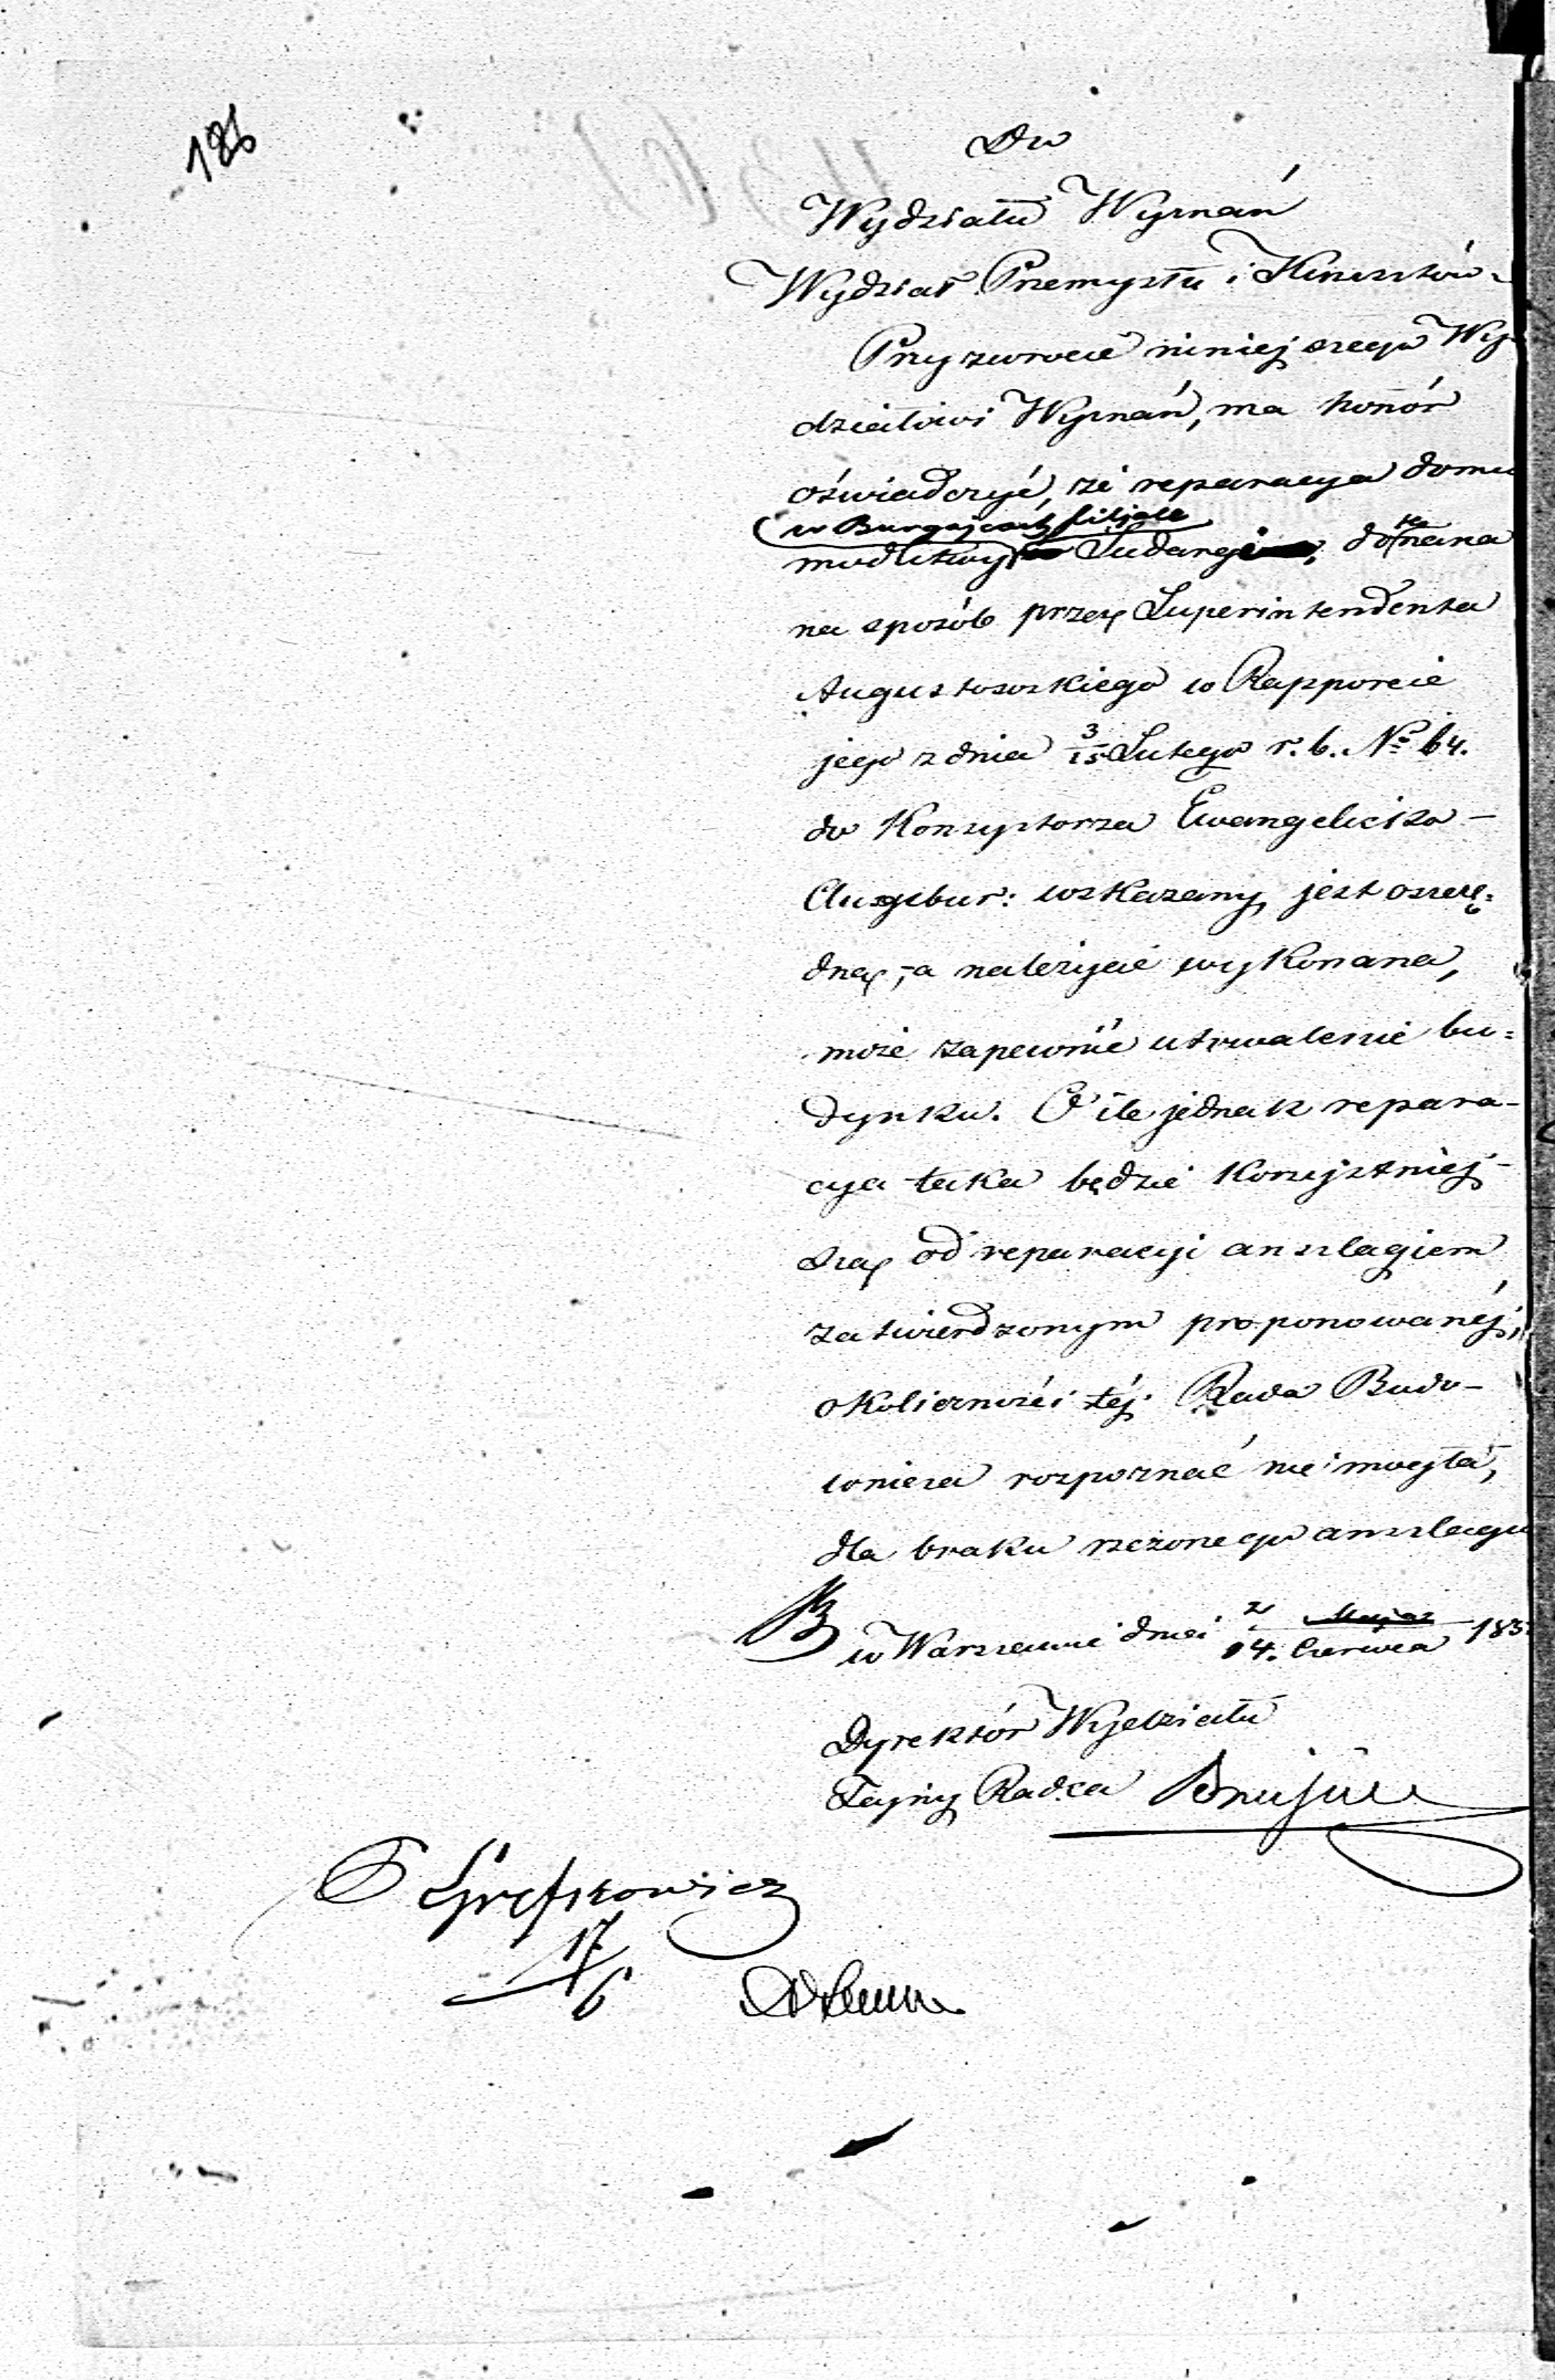 186
Do
Wydziału Wyznań
Wydział Przemysłu i Kunsztów.
Przy zwrocie niniejszego Wy-
działowi Wyznań, ma honór
oświadczyć, że reparacya domu
w Burgajciach filjale
modlitwy Sudargi, dokonana
na sposób przez Superintendenta
Augustowskiego w Rapporcie
jego z dnia 3/15 Lutego r. b. No 64.
do Konsystorza Ewangelicko-
Augsbur: wskazany, jest oszczę=
dną, a należycie wykonana,
może zapewnić utrwalenie bu=
dynku. O ile jednak repara-
cya taka będzie korzystniej-
szą od reparacyi anszlagiem
zatwierdzonym proponowanéj,
okoliczności téj Rada Budo-
wnicza rozpoznać nie mogła,
dla braku rzeczonego anszlagu
w Warszawie dnia 2/14. Maja Czerwca 183
Dyrektór Wydziału
Tajny Radca
17/6